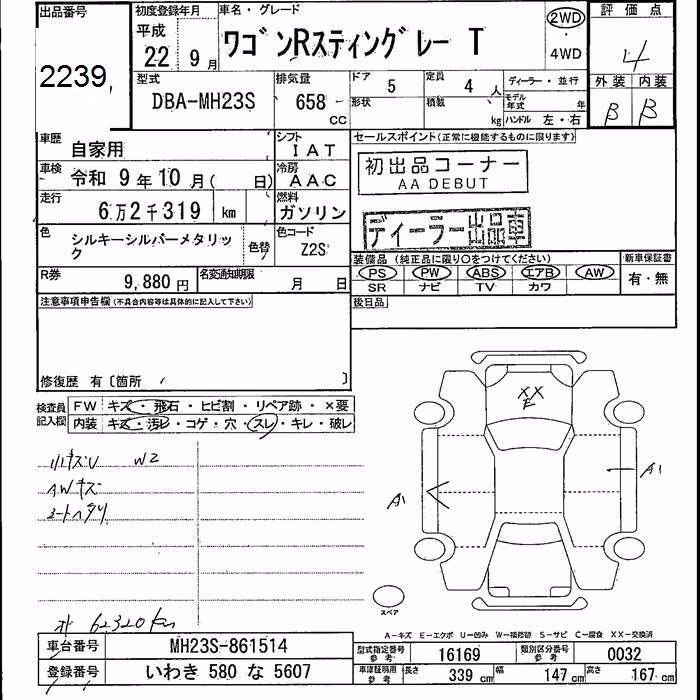 出品番号
2239
初度登録年月
平成
22 9月
車名・グレード
ワゴンRスティングレー T
2WD
・
4WD
評価点
4
外装 内装
B B
型式
DBA-MH23S
排気量
658 - CC
ドア 5
形状
定員 4 人
積載 kg
ディーラー・並行
モデル年式 年
ハンドル 左・右
車歴
自家用
シフト
IAT
車検
令和 9年10月( 日)
冷房
AAC
走行
6万2千319 km
燃料
ガソリン
色
シルキーシルバーメタリック
色替
色コード
Z2S
R券
9,880円
名変通知期限
月 日
セールスポイント(正常に機能するものに限ります)
初出品コーナー
AA DEBUT
ディーラー出品車
装備品 (純正品に限り○をつけてください)
新車保証書
PS PW ABS エアB AW
SR ナビ TV カワ
有・無
後日品
注意事項申告欄(不具合内容等は具体的に記入して下さい)
修復歴 有〔箇所 〕
検査員記入欄
FW キズ・飛石・ヒビ割・リペア跡・×要
内装 キズ・汚レ・コゲ・穴・スレ・キレ・破レ
小キズU W2
AWキズ
シートヘタリ
62320km
XX
E
A1
A1
スペア
A-キズ E-エクボ U-凹み W-補修跡 S-サビ C-腐食 XX-交換済
車台番号
MH23S-861514
登録番号
いわき 580 な 5607
型式指定番号 参考
16169
類別区分番号 参考
0032
車庫証明用 参考
長さ 339 cm
幅 147 cm
高さ 167 cm